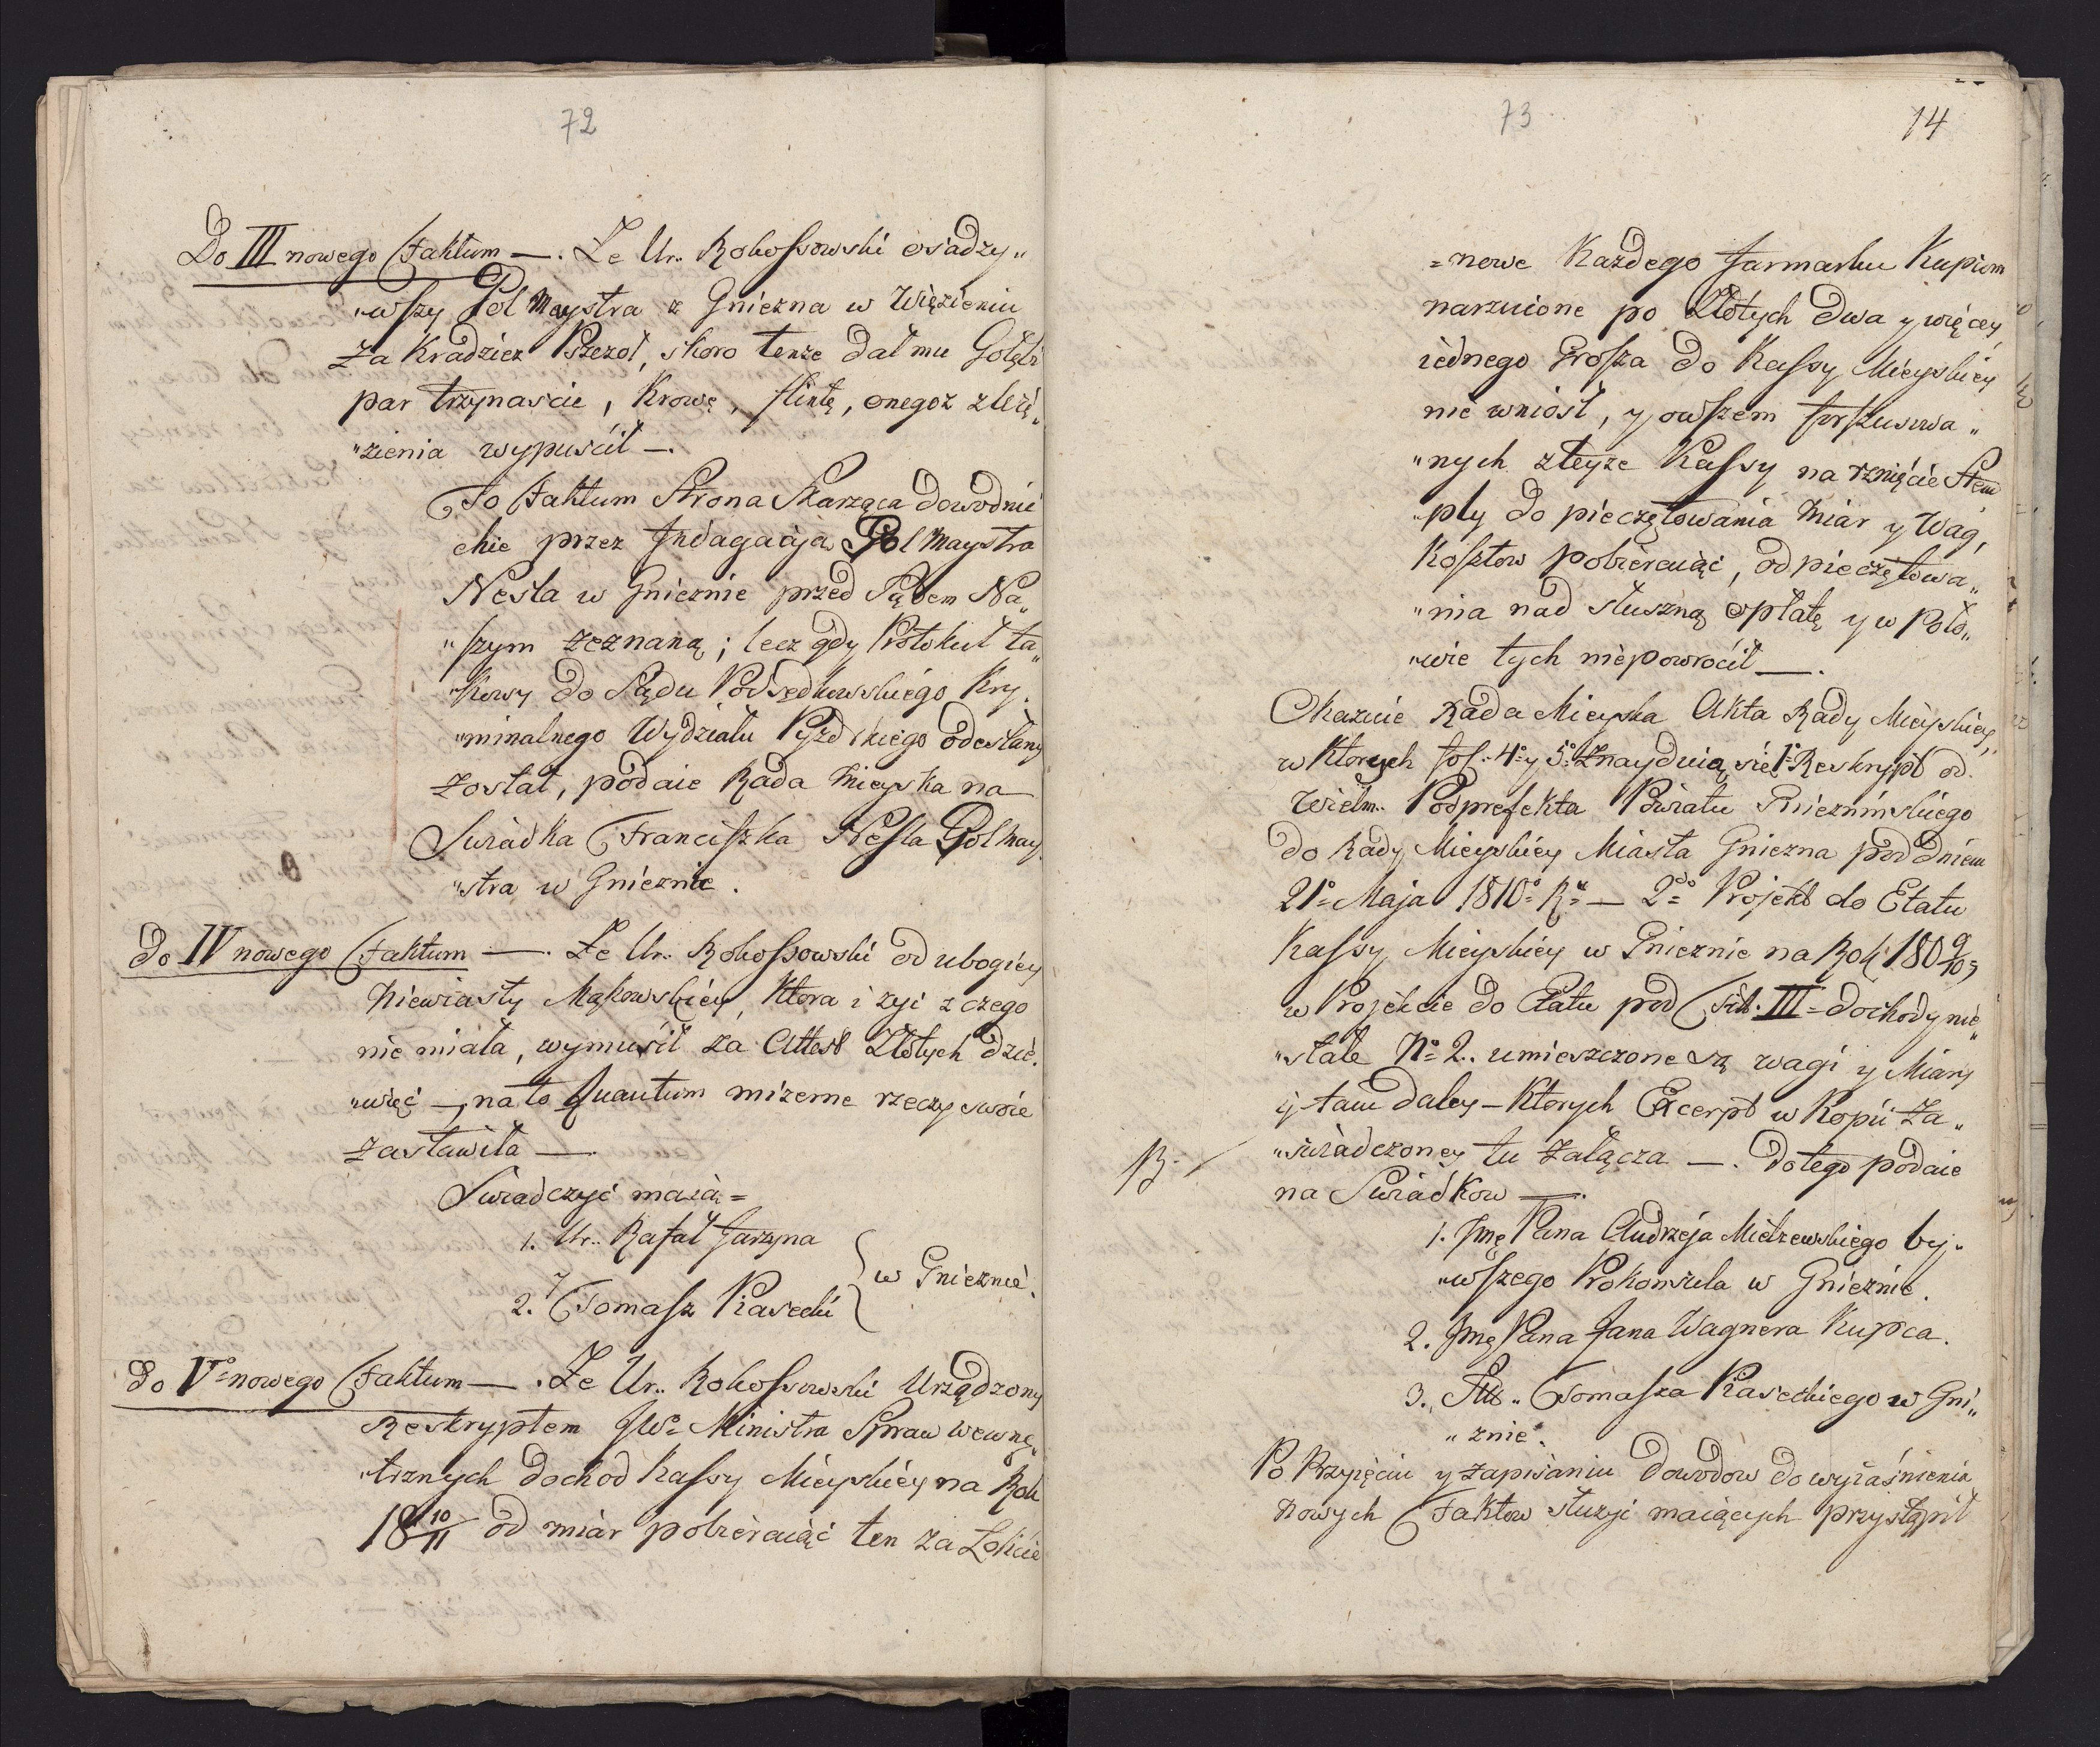 72
Do III nowego Faktum —. Że Ur. Rokossowski osadzy„
„wszy Pol Maystra z Gniezna w Więzieniu
za Kradzież Pszczoł, skoro tenże dał mu Gołębi
par trzynaście, Krowę, flintę, onegoz z Wię„
„zienia wypuścił —.
To Faktum Strona Skarząca dowodnie
chie przez Indagacyją Pol Maystra
Nesla w Gnieznie przed Sądem Na„
„szym zeznaną; lecz gdy Protokuł ta„
„kowy do Sądu Podsędkowskiego Kry„
„minalnego Wydziału Pyzdrskiego odesłany
został, podaie Rada Mieyska na
Swiadka Franciszka Nesla Pol May„
„stra w Gnieznie.
do IV nowego Faktum —. Że Ur. Rokossowski od ubogiey
Niewiasty Mąkowskiey, Ktora i zyć z czego
nie miała, wymusił za Attest Złotych dzie„
„więć —, na to Quantum mizerne rzeczy swoie
zastawiła —.
Swiadczyć maią =
1. Ur. Rafał Jarzyna
2. „ Tomasz Piasecki
w Gnieznie.
do V° nowego Faktum —. Że Ur. Rokossowski Urządzony
Reskryptem JW° Ministra Spraw wewnę„
„trznych dochod Kassy Mieyskiey na Rok
18 10/11 od miar pobieraiąc ten za Łokcie
73
14
= nowe Każdego Jarmarku Kupcom
narzucone po Złotych dwa y więcey
iednego Grosza do Kassy Mieyskiey
nie wniosł, y owszem forszusowa„
„nych z teyże Kassy na rznięcie Stem
„ply do pieczętowania Miar y Wag,
Kosztow pobieraiąc, od pieczętowa„
„nia nad słuszną opłatę y w Poło„
„wie tych niepowrocił —.
Okazuie Rada Mieyska Akta Rady Mieyskiey,
w Ktorych fol. 4° y 5° Znayduią się 1° Reskrypt od
Wielm. Podprefekta Powiatu Gnieznińskiego
do Rady Mieyskiey Miasta Gniezna pod dniem
21° Maja 1810° R° — 2do Projekt do Etatu
Kassy Mieyskiey w Gnieznie na Rok 180 9/10,
w Projekcie do Etatu pod Tit. III = dochody nie„
„stałe N° 2. umieszczone są wagi y Miary
y tam daley — Ktorych Excerpt w Kopii Za„
B. / „swiadczoney tu załącza —. Do tego podaie
na Swiadkow —.
1. Jmę Pana Andrzeja Mielzewskiego by„
„wszego Prokonsula w Gnieznie.
2. Jmę Pana Jana Wagnera Kupca.
3. Tomasza Piaseckiego w Gni„
„znie.
Po Przyięciu y zapisaniu Dowodow do wyiaśnienia
nowych Faktow służyć maiących przystąpił